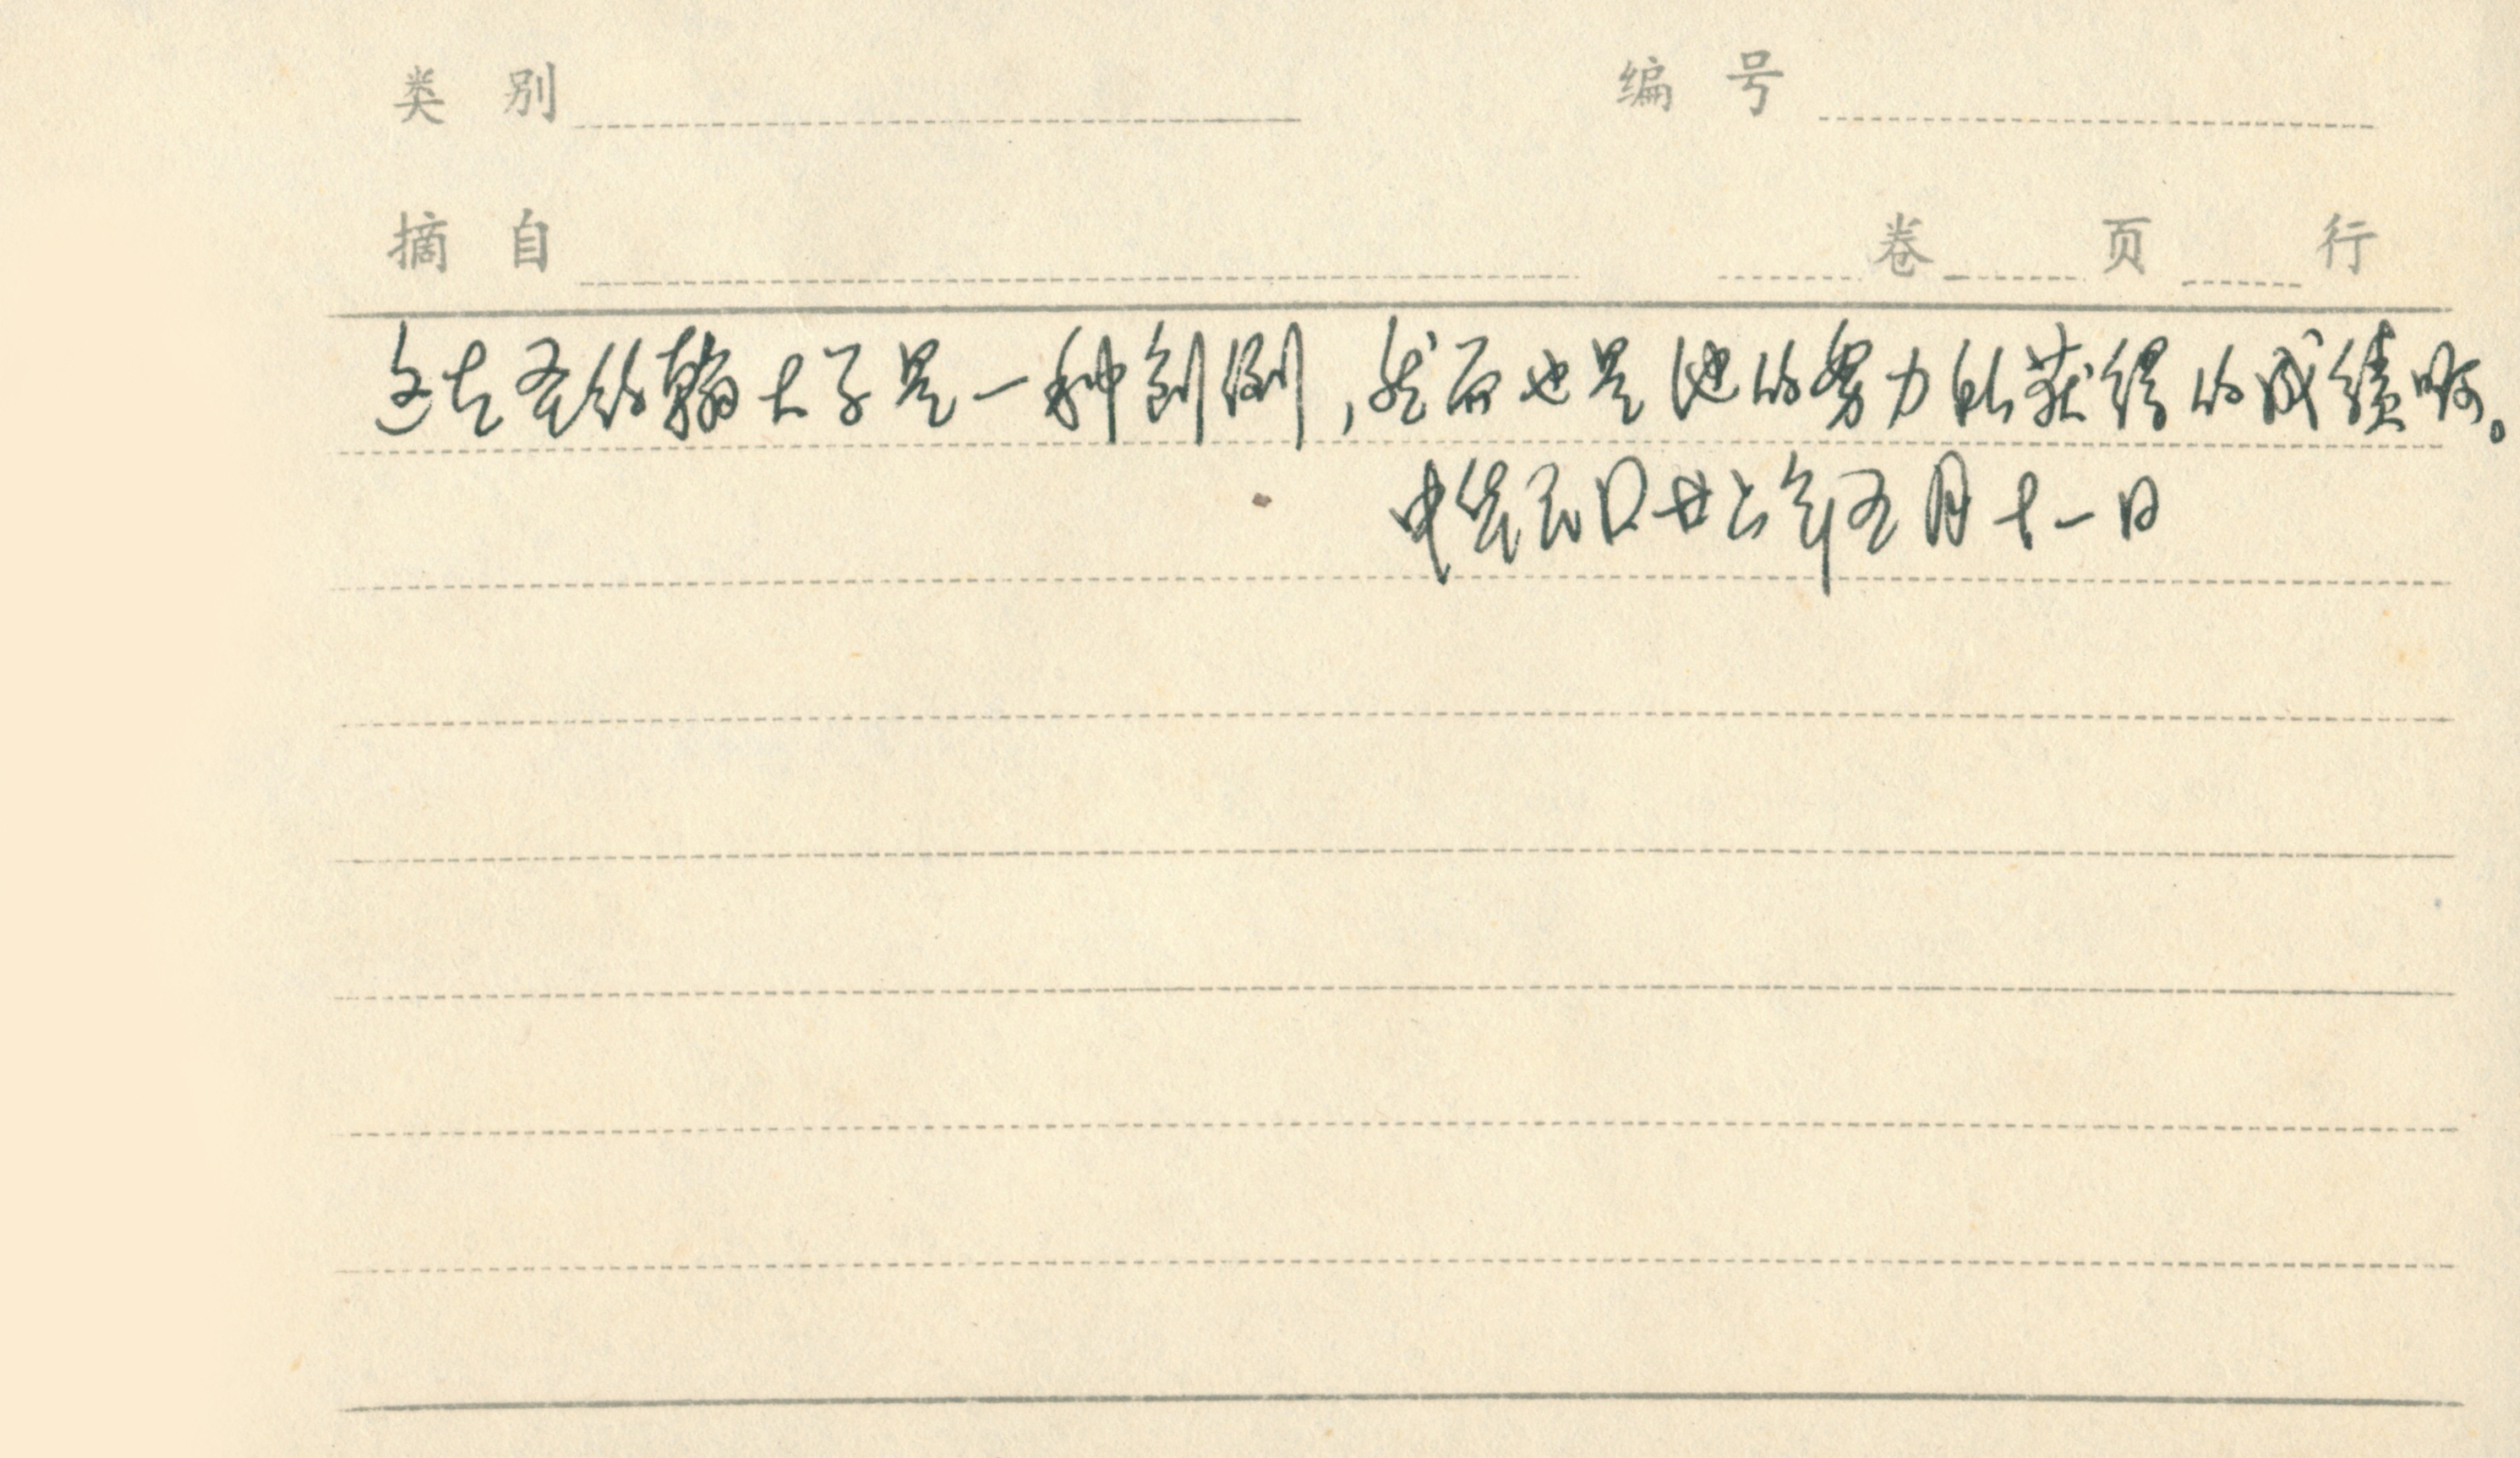 类别 编号
摘自 卷 页 行
这在圣约翰大学是一种创例，然而也是他的努力所获得的成绩啊。
中华民国廿六年五月十一日